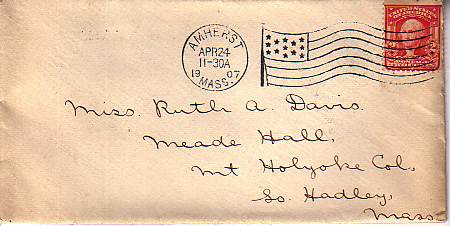 AMHERST
APR 24
11-30A
19 07
MASS.
UNITED STATES
2
Miss. Ruth A. Davis.
Meade Hall,
Mt Holyoke Col.,
So. Hadley,
Mass.